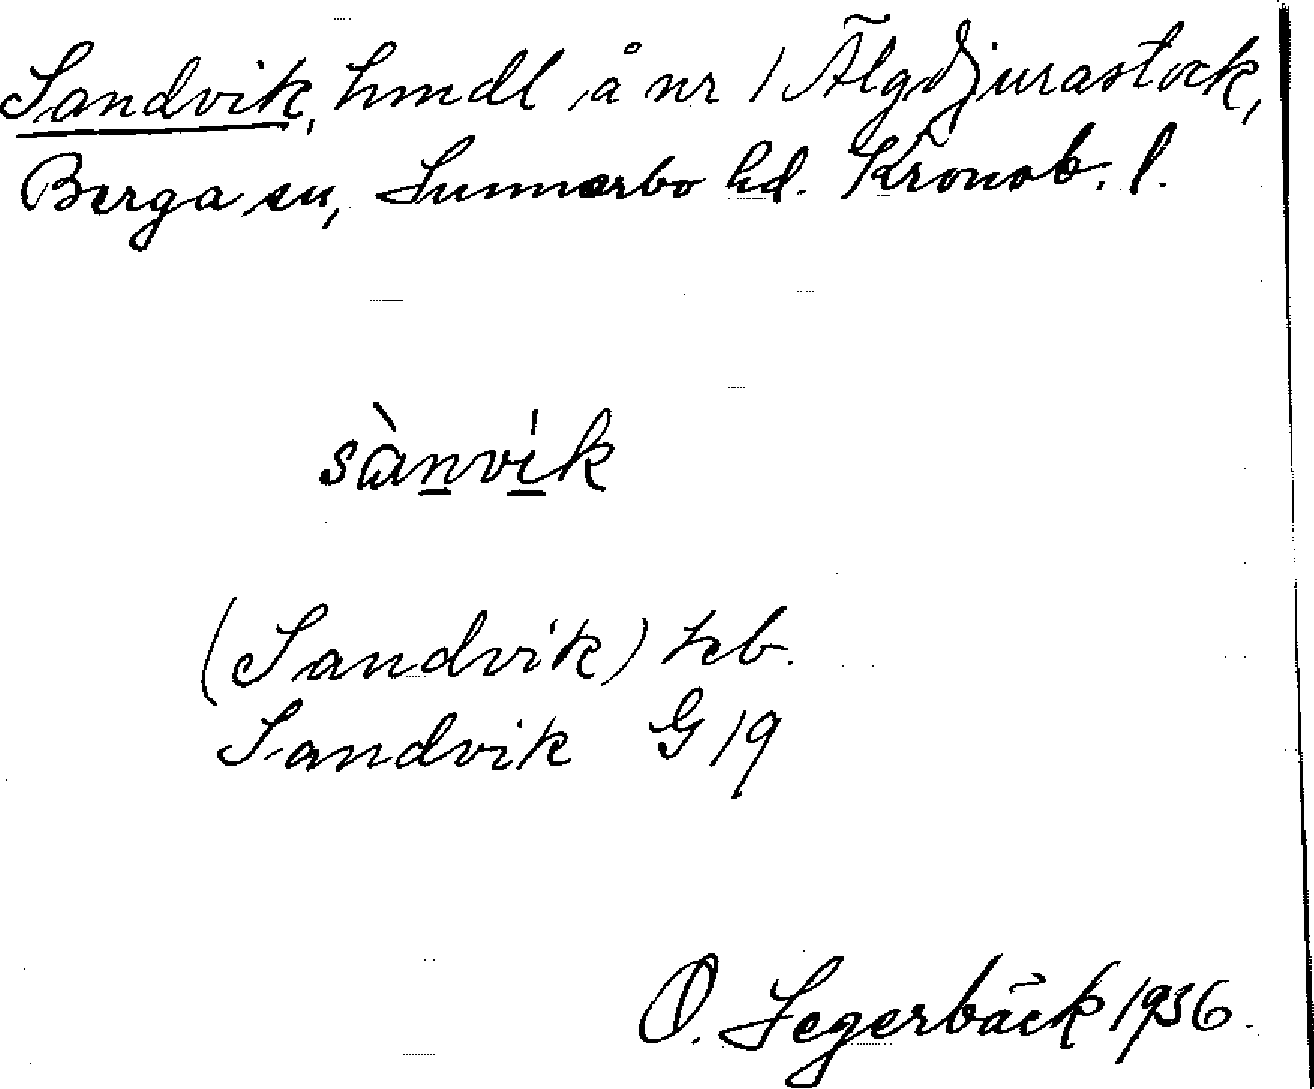 Sandvik, hmdl å nr 1 Älgdjurastock,
Berga sn, Sunnerbo hd. Kronob. l.
sànvik
(Sandvik) kb.
Sandvik G 19
O. Segerbäck 1936.